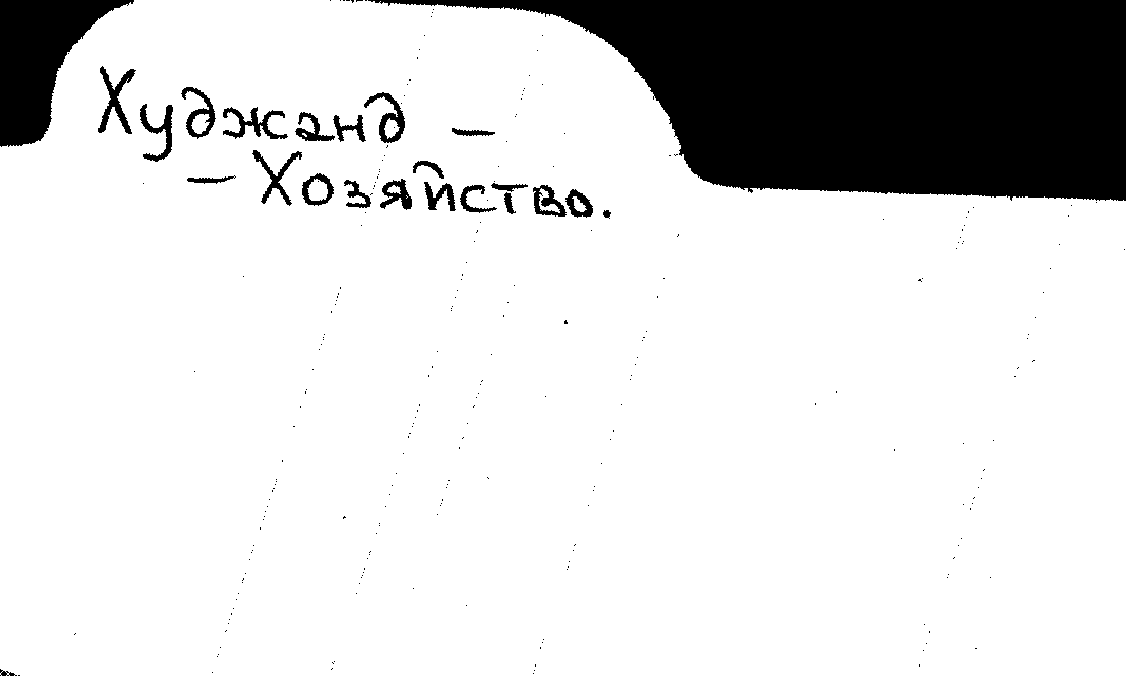 Худжанд –
– Хозяйство.